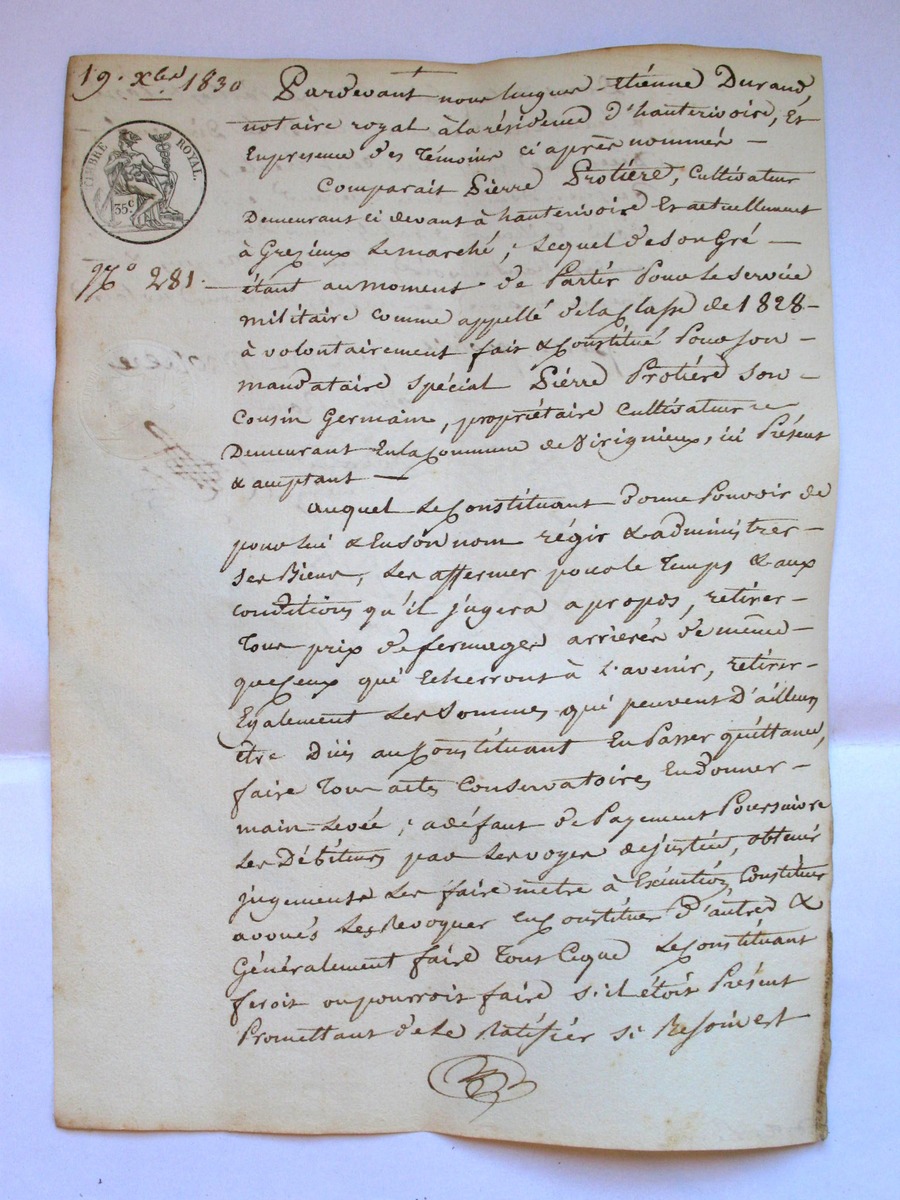 19. Xbre 1830
TIMBRE ROYAL.
35c
No 281.
Pardevant nous hugues Etiénne Durand,
notaire royal à la résidence d'hauterivoire, Et
En presence des témoins ci après nommés —
Comparait Pierre Protière, Cultivateur
Demeurant ci devant à hauterivoire Et actuellement
à Grezieux Lemarché, Lequel de Son Gré —
étant au moment de Partir Pour le Service
militaire comme appellé de la Classe de 1828 —
à volontairement fait & Constitué Pour Son —
mandataire spécial Piérre Protiére Son —
Cousin Germain, propriétaire Cultivateur
Demeurant En la Commune de Virignieux, ici Présent
& acceptant —
auquel Le Constituant donne Pouvoir de
pour lui & En Son nom régir & administrer —
Ses Biens, Les affermer pour le Temps & aux
conditions qu'il jugera apropos, retirer —
Tous prix de fermages arriérés de même —
que Ceux qui Echerront à L'avenir, retirer —
Egalement Les Sommes qui peuvent D'ailleurs
être Dües au Constituant En Passer quittance,
faire Tous actes Conservatoires En donner —
main Levée, adéfaut de Payement Poursuivre
Les Débiteurs par Les voyes de justice, obtenir
jugements Les faire mètre à Exécution, Constituer
avoués Les Revoquer en Constituer d'autres &
Généralement faire Tout Ceque Le Constituant
feroit ou pourroit faire s'il étoit Présent
Promettant de Le Ratifier Si Besoin est